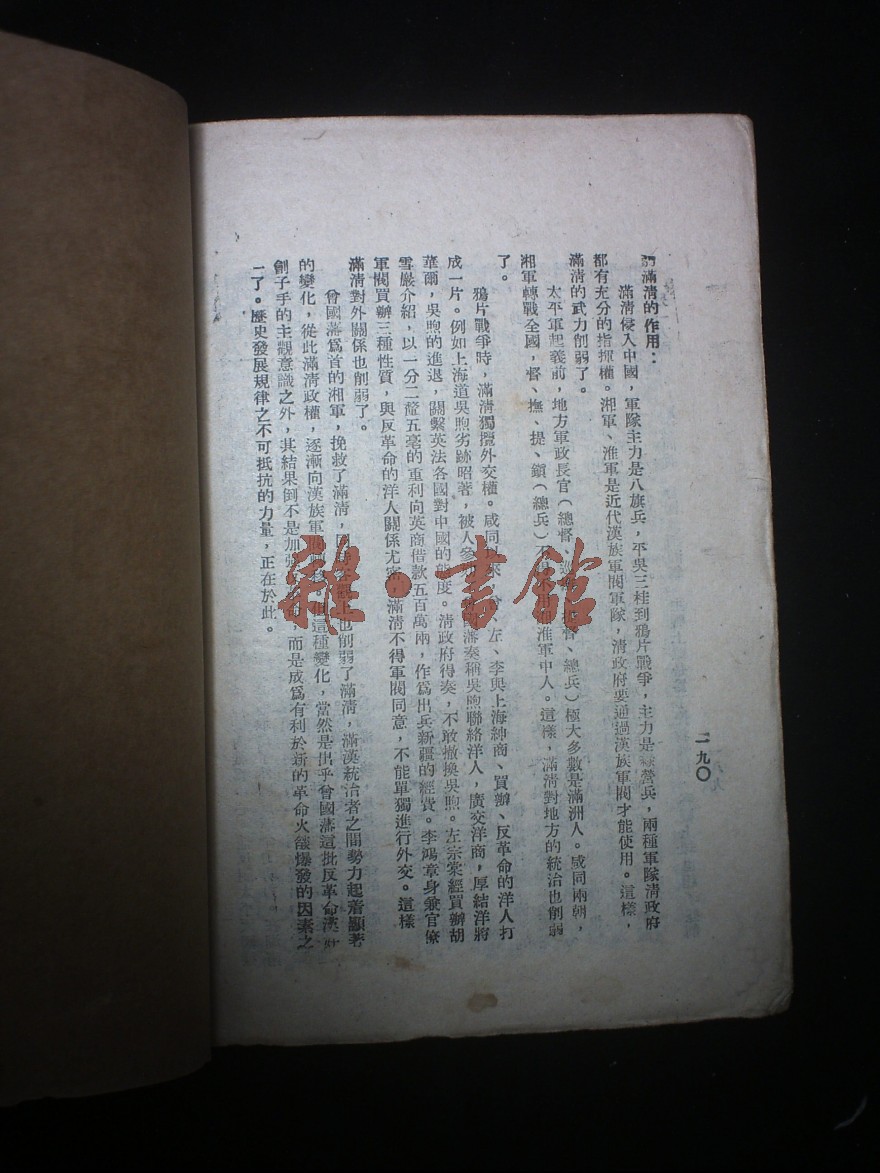 二九〇
滿清的作用：
滿清侵入中國，軍隊主力是八旗兵，平吳三桂到鴉片戰爭，主力是綠營兵，兩種軍隊清政府
都有充分的指揮權。湘軍、淮軍是近代漢族軍閥軍隊，清政府要通過漢族軍閥才能使用。這樣，
滿清的武力削弱了。
太平軍起義前，地方軍政長官（總督、巡 督、總兵）極大多數是滿洲人。咸同兩朝，
湘軍轉戰全國，督、撫、提、鎮（總兵）不 淮軍中人。這樣，滿清對地方的統治也削弱
了。
鴉片戰爭時，滿清獨攬外交權。咸同 來，曾、左、李與上海紳商、買辦、反革命的洋人打
成一片。例如上海道吳煦劣跡昭著，被人參 奏稱吳煦聯絡洋人，廣交洋商，厚結洋將
華爾，吳煦的進退，關繫英法各國對中國的態度。清政府得奏，不敢撤換吳煦。左宗棠經買辦胡
雪巖介紹，以一分二釐五毫的重利向英商借款五百萬兩，作爲出兵新疆的經費。李鴻章身兼官僚
軍閥買辦三種性質，與反革命的洋人關係尤密，滿清不得軍閥同意，不能單獨進行外交。這樣
滿清對外關係也削弱了。
曾國藩爲首的湘軍，挽救了滿清， 也削弱了滿清，滿漢統治者之間勢力起着顯著
的變化，從此滿清政權，逐漸向漢族軍閥 這種變化，當然是出乎曾國藩這批反革命漢奸
劊子手的主觀意識之外，其結果倒不是加強 ，而是成爲有利於新的革命火燄爆發的因素之
一了。歷史發展規律之不可抵抗的力量，正在於此。
雜·書館